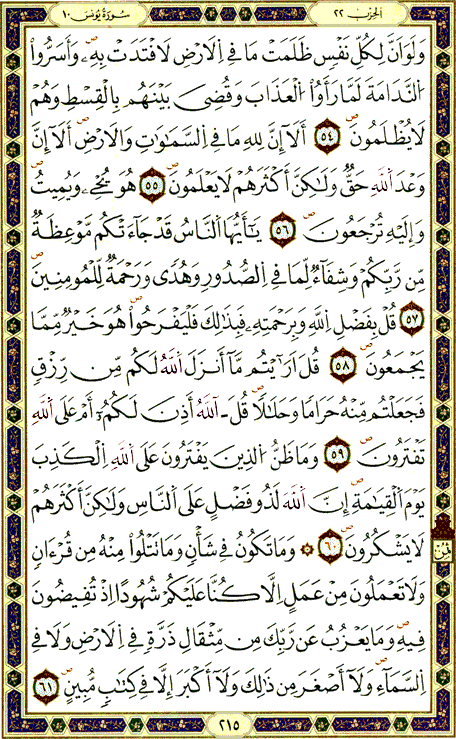 الحزب ٢٢
سورة يونس ١٠
وَلَوَ اَنَّ لِكُلِّ نَفْسٖ ظَلَمَتْ مَا فِے اِ۬لَارْضِ لَافْتَدَتْ بِهِۦ وَأَسَرُّواْ
اُ۬لنَّدَامَةَ لَمَّا رَأَوُاْ اُ۬لْعَذَابَ وَقُضِيَ بَيْنَهُم بِالْقِسْطِ وَهُمْ
لَا يُظْلَمُونَ ٥٤ أَلَآ إِنَّ لِلهِ مَا فِے اِ۬لسَّمَٰوَٰتِ وَالَارْضِ أَلَآ إِنَّ
وَعْدَ اَ۬للَّهِ حَقّٞ وَلَٰكِنَّ أَكْثَرَهُمْ لَا يَعْلَمُونَ ٥٥ هُوَ يُحْيِۦ وَيُمِيتُ
وَإِلَيْهِ تُرْجَعُونَ ٥٦ يَٰٓأَيُّهَا اَ۬لنَّاسُ قَدْ جَآءَتْكُم مَّوْعِظَةٞ
مِّن رَّبِّكُمْ وَشِفَآءٞ لِّمَا فِے اِ۬لصُّدُورِ وَهُدىٗ وَرَحْمَةٞ لِّلْمُومِنِينَ
٥٧ قُلْ بِفَضْلِ اِ۬للَّهِ وَبِرَحْمَتِهِۦ فَبِذَٰلِكَ فَلْيَفْرَحُواْ هُوَ خَيْرٞ مِّمَّا
يَجْمَعُونَ ٥٨ قُلَ اَرَٰٓيْتُم مَّآ أَنزَلَ اَ۬للَّهُ لَكُم مِّن رِّزْقٖ
فَجَعَلْتُم مِّنْهُ حَرَاماٗ وَحَلَٰلاٗ قُلَ ـ آللَّهُ أَذِنَ لَكُمُۥٓ أَمْ عَلَى اَ۬للَّهِ
تَفْتَرُونَ ٥٩ وَمَا ظَنُّ اُ۬لذِينَ يَفْتَرُونَ عَلَى اَ۬للَّهِ اِ۬لْكَذِبَ
يَوْمَ اَ۬لْقِيَٰمَةِ إِنَّ اَ۬للَّهَ لَذُو فَضْلٍ عَلَى اَ۬لنَّاسِ وَلَٰكِنَّ أَكْثَرَهُمْ
لَا يَشْكُرُونَ ٦٠ ۞ وَمَا تَكُونُ فِے شَأْنٖ وَمَا تَتْلُواْ مِنْهُ مِن قُرْءَانٖ
وَلَا تَعْمَلُونَ مِنْ عَمَلٍ اِلَّا كُنَّا عَلَيْكُمْ شُهُوداً اِذْ تُفِيضُونَ
فِيهِ وَمَا يَعْزُبُ عَن رَّبِّكَ مِن مِّثْقَالِ ذَرَّةٖ فِے اِ۬لَارْضِ وَلَا فِے
اِ۬لسَّمَآءِ وَلَآ أَصْغَرَ مِن ذَٰلِكَ وَلَآ أَكْبَرَ إِلَّا فِے كِتَٰبٖ مُّبِينٍ ٦١
٢١٥